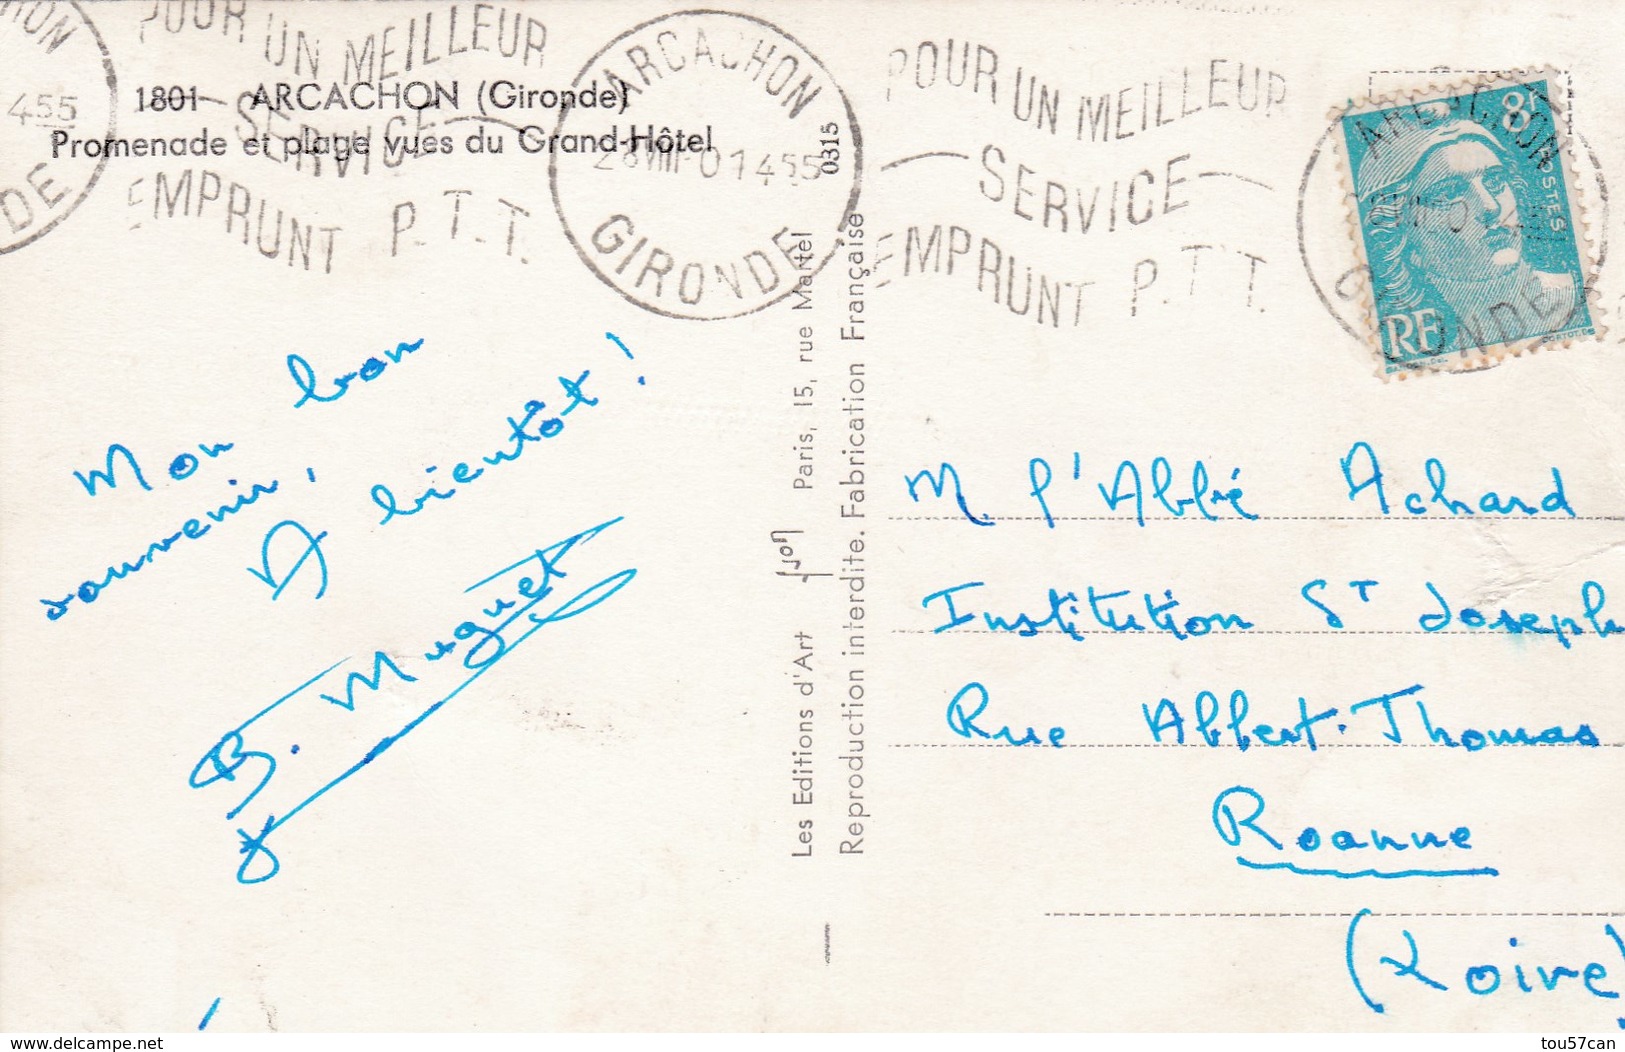 POUR UN MEILLEUR
SERVICE
EMPRUNT P.T.T.
ARCACHON
GIRONDE
POUR UN MEILLEUR
SERVICE
EMPRUNT P.T.T.
1801 ARCACHON (Gironde)
Promenade et plage vues du Grand-Hôtel
0315
8f
POSTES
RF
Mon bon
souvenir,
A bientôt !
B. Muguet
Les Editions d'Art Yvon Paris, 15, rue Martel
Reproduction interdite. Fabrication Française
M. l'Abbé Achard
Institution St Joseph
Rue Albert-Thomas
Roanne
(Loire)
www.delcampe.net
tou57can